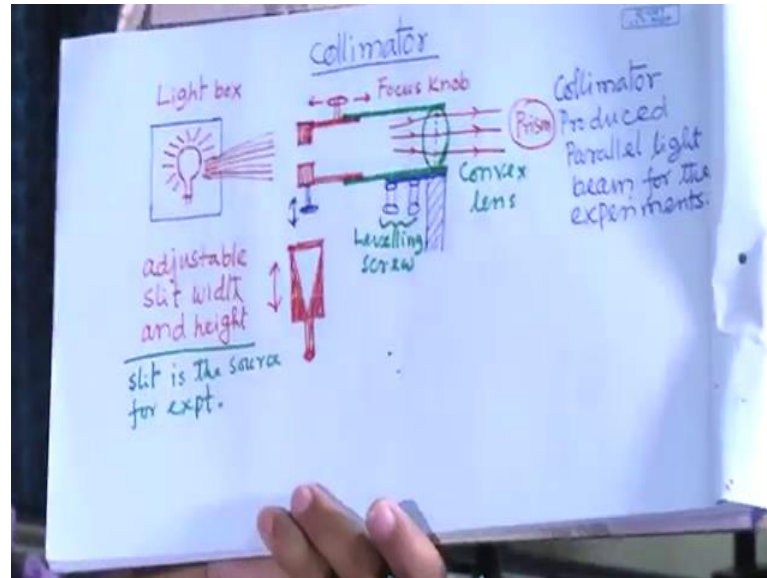 Collimator
Light box
Focus Knob
Prism
Collimator
Produced
Parallel light
beam for the
experiments.
Convex
lens
Levelling
screw
adjustable
slit width
and height
slit is the source
for expt.